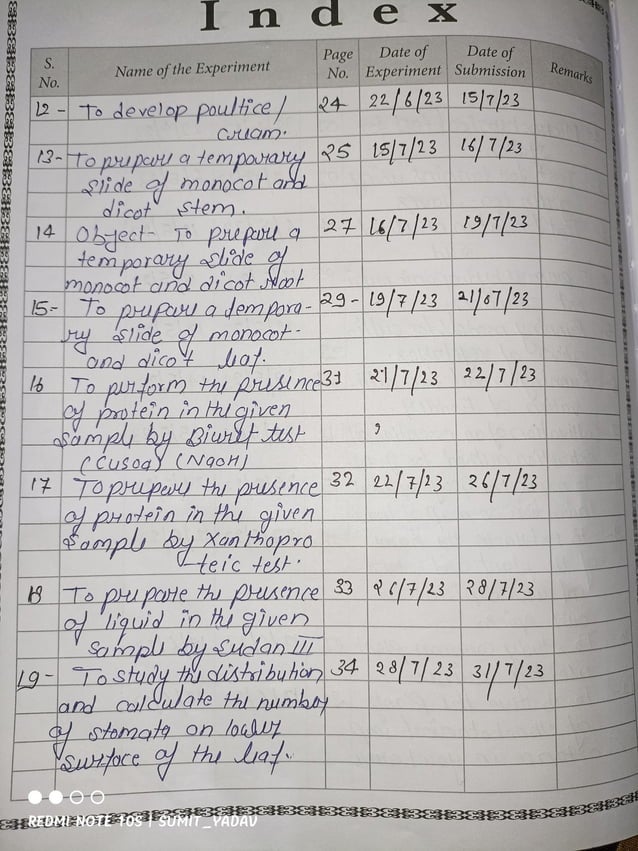 Index
S. No. Name of the Experiment Page No. Date of Experiment Date of Submission Remarks
12 - To develop poultice / 24 22/6/23 15/7/23
cream.
13- To prepare a temporary 25 15/7/23 16/7/23
slide of monocot and
dicot stem.
14 Object- To prepare a 27 16/7/23 19/7/23
temporary slide of
monocot and dicot root
15- To prepare a tempora- 29- 19/7/23 21/07/23
ry slide of monocot-
and dicot leaf.
16 To perform the presence 31 21/7/23 22/7/23
of protein in the given
sample by Biuret test
(CuSO4) (NaOH)
17 To prepare the presence 32 22/7/23 26/7/23
of protein in the given
sample by Xanthopro
teic test.
18 To prepare the presence 33 26/7/23 28/7/23
of liquid in the given
sample by Sudan III
19- To study the distribution 34 28/7/23 31/7/23
and calculate the number
of stomata on lower
surface of the leaf.
REDMI NOTE 10S | SUMIT_YADAV